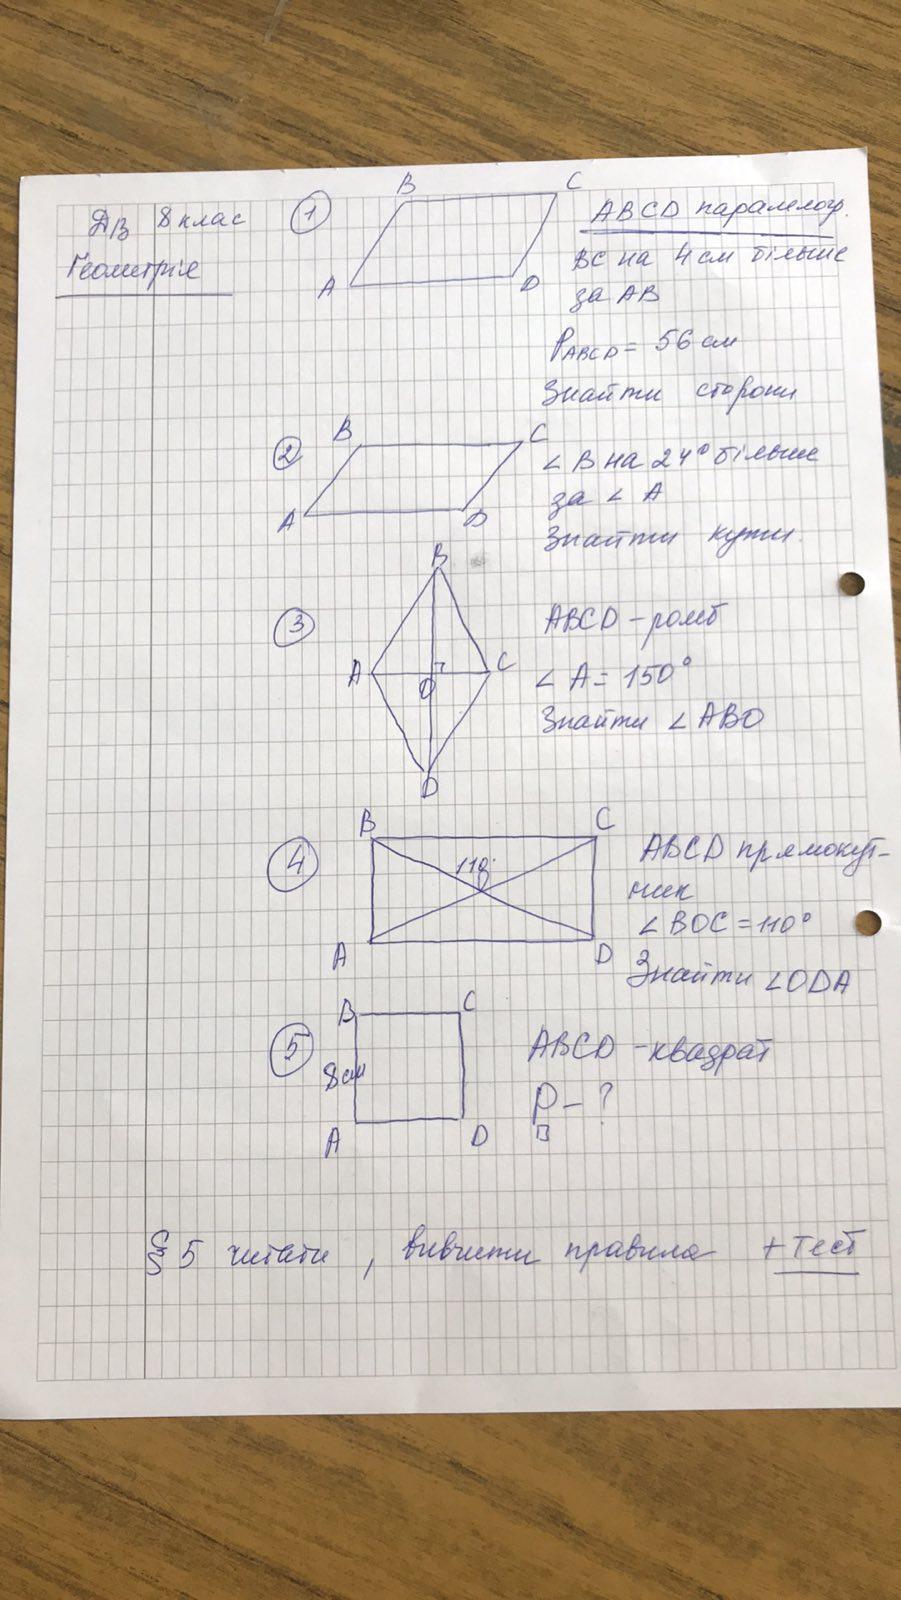 ДЗ 8 клас
Геометрія
1
B
C
A
D
ABCD паралелогр.
BC на 4 см більше
за AB
P ABCD = 56 см
Знайти сторони
2
B
C
A
D
∠B на 24° більше
за ∠A
Знайти кути.
3
B
A
C
O
D
ABCD - ромб
∠A = 150°
Знайти ∠ABO
4
B
C
110°
A
D
ABCD прямокут-
ник
∠BOC = 110°
Знайти ∠ODA
5
B
C
8 см
A
D
ABCD - квадрат
P - ?
§ 5 читати, вивчити правила + Тест